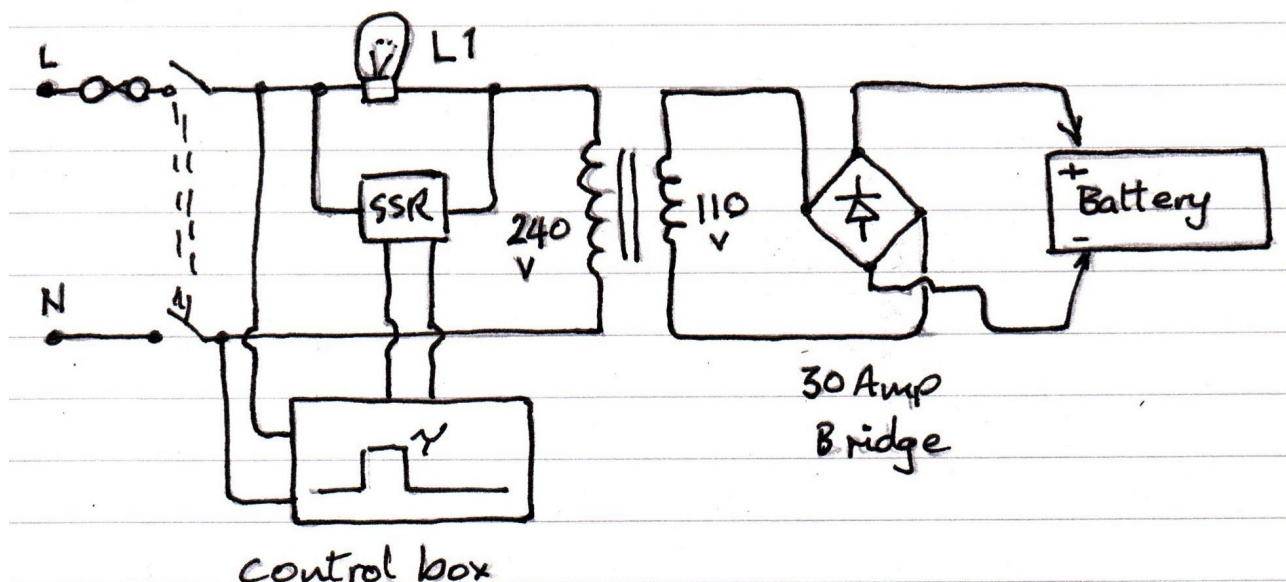 L
L1
SSR
240
V
110
V
+
Battery
-
N
30 Amp
Bridge
control box